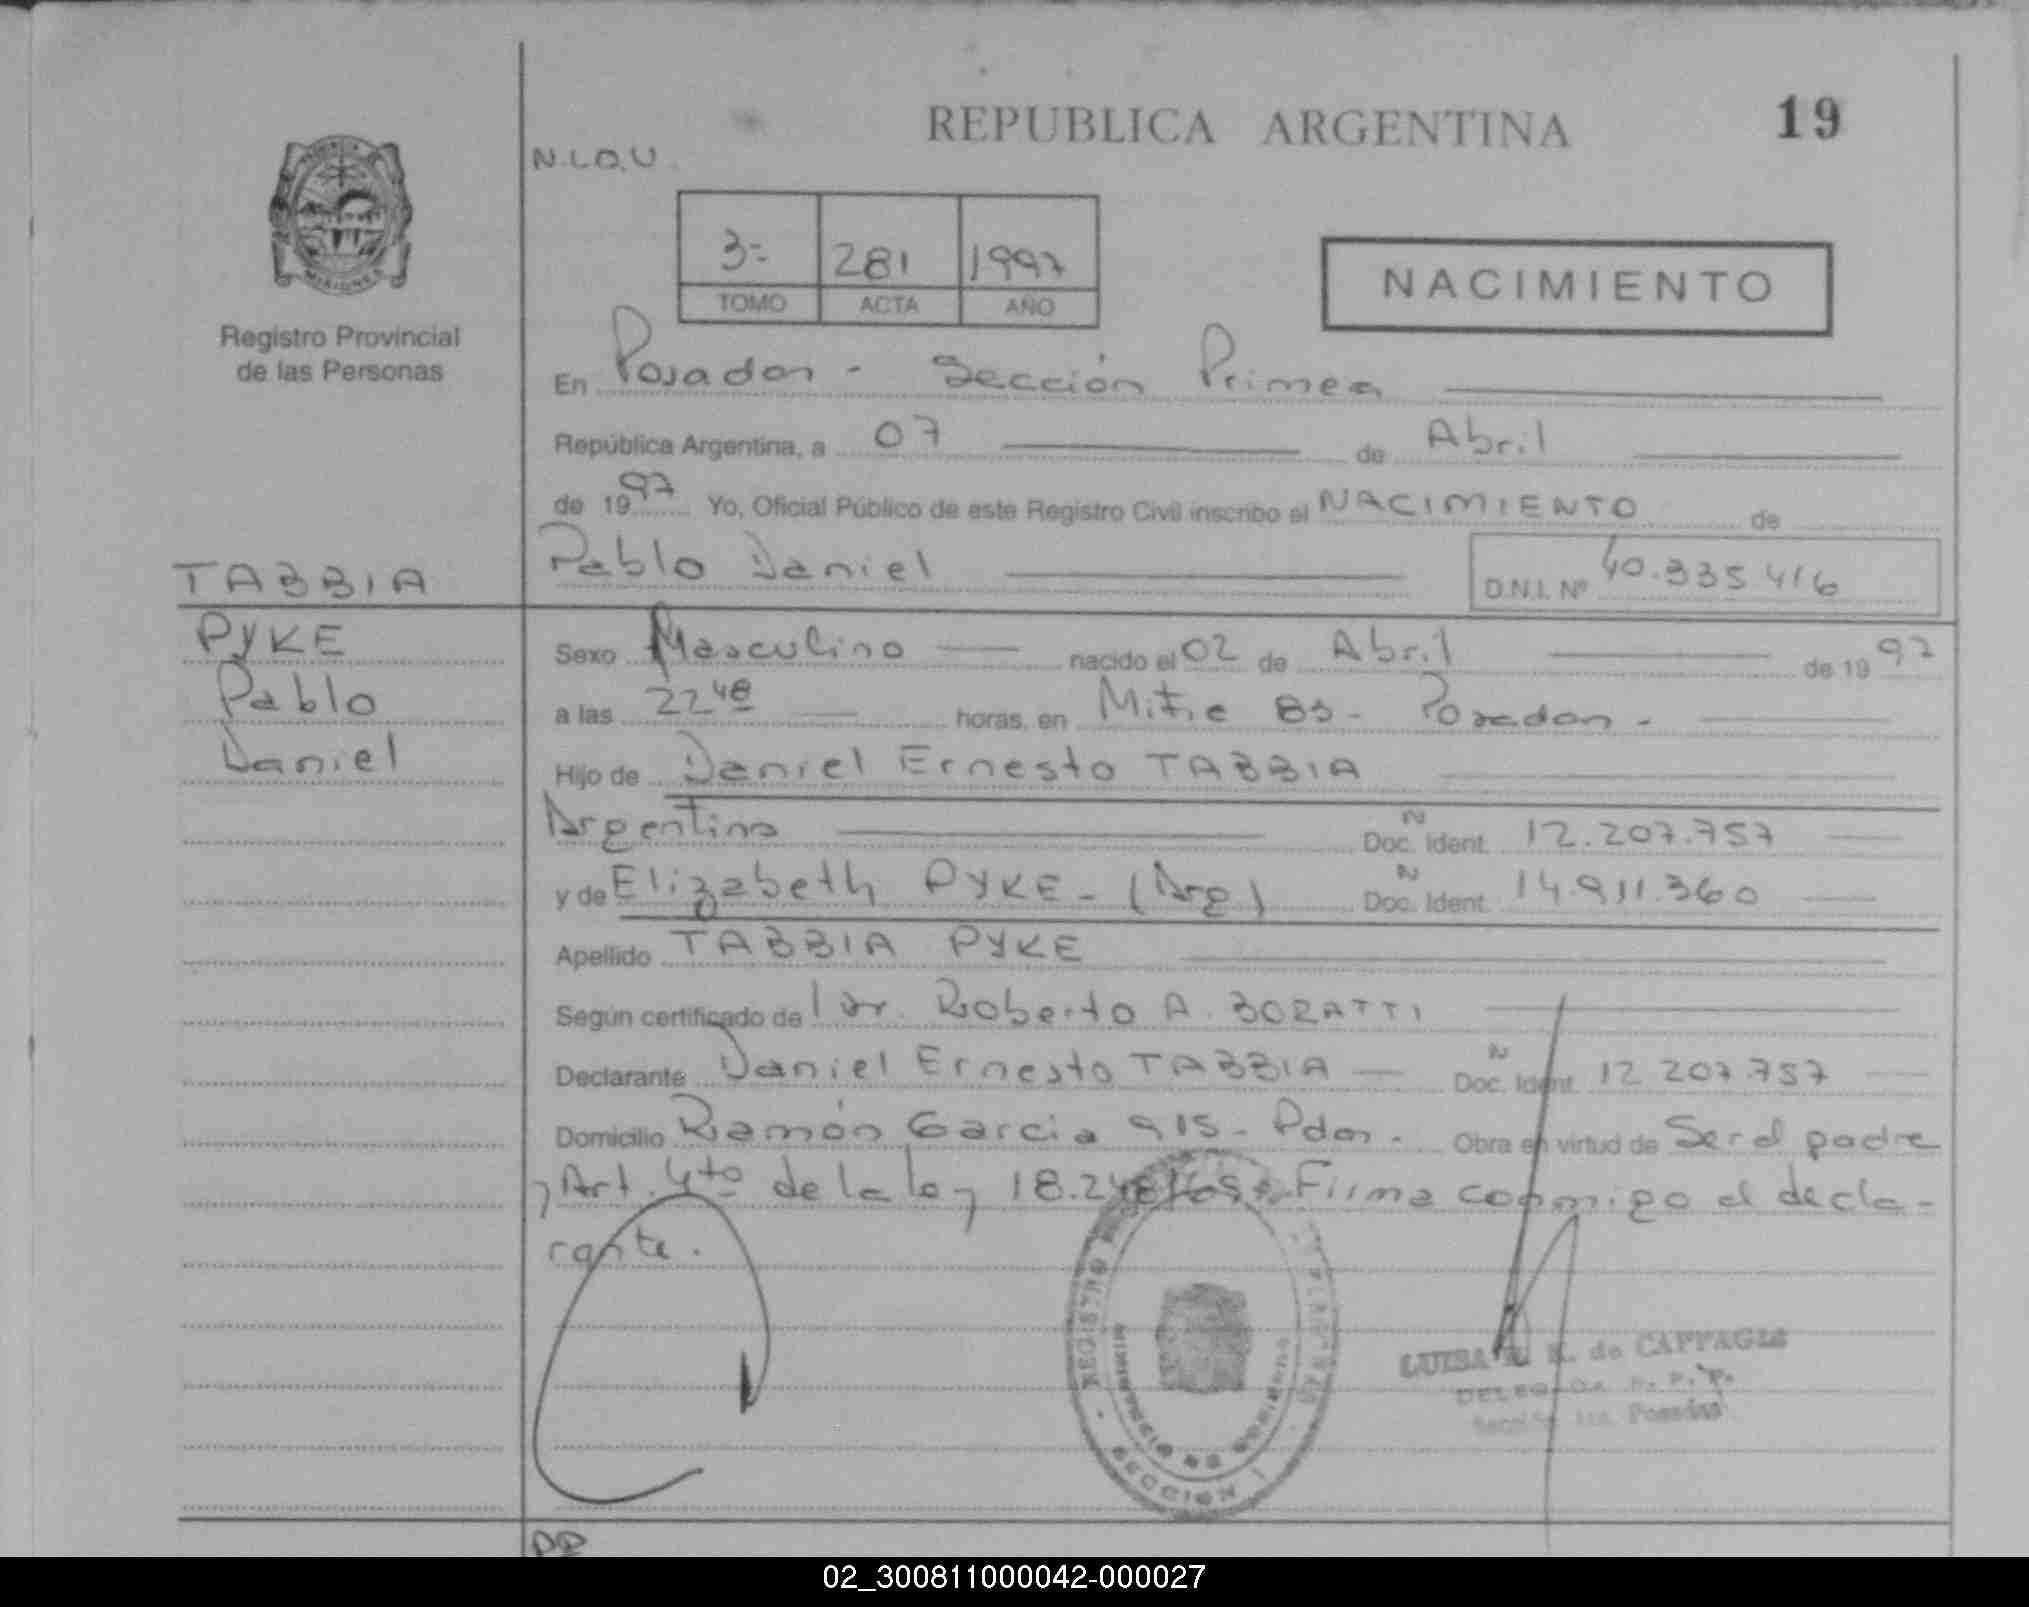 REPUBLICA ARGENTINA 19
N.L.O.U.
3-- 281 1997
TOMO ACTA AÑO
NACIMIENTO
MISIONES
Registro Provincial
de las Personas
En Posadas - Sección Primera
República Argentina, a 07 de Abril
de 1997 Yo, Oficial Público de este Registro Civil inscribo el NACIMIENTO de
Pablo Daniel D.N.I. Nº 40.335 416
TABBIA
PYKE
Pablo
Daniel
Sexo Masculino nacido el 02 de Abril de 1997
a las 22 48 horas, en Mitre 83 - Posadas -
Hijo de Daniel Ernesto TABBIA
Argentino Doc. Ident. 12.207.757
y de Elizabeth PYKE - (Arg) Doc. Ident. 14.911.360
Apellido TABBIA PYKE
Según certificado de Dr. Roberto A. BOZATTI
Declarante Daniel Ernesto TABBIA Doc. Ident. 12 207.757
Domicilio Ramón Garcia 915 - Pdas. Obra en virtud de Ser el padre
y Art. 4to de la ley 18.248/69. Firma conmigo el decla-
rante.
REGISTRO
SECCION 1
LUISA de CAPPAGLI
R. P. P.
Sección 1ra. Posadas
02_300811000042-000027